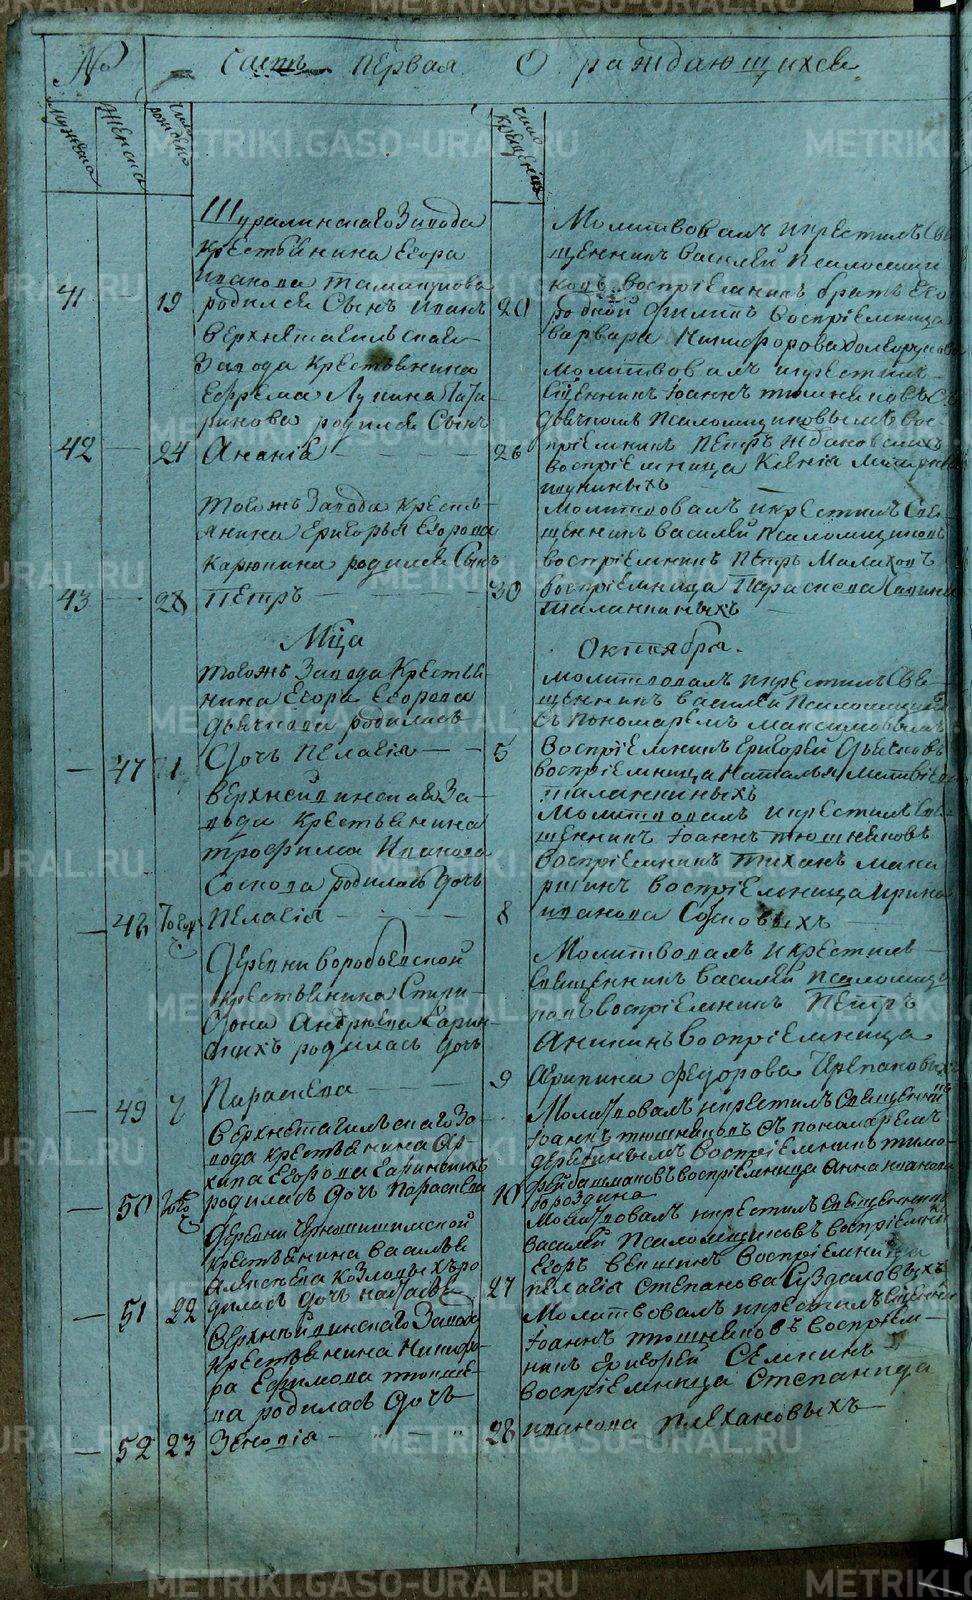 № Часть первая О раждающихся
Мужеска
Женска
число рождения
число крещения
Шуралинскаго Завода
крестьянина Егора
Иванова
41 — 19 родился Сынъ Иванъ
Молитвовалъ и крестилъ Свя
щенникъ Василей Псаломщи
ковъ воспріемникъ братъ его
20 родной Филипъ воспріемница
варвара Никифорова
Верхнетагильскаго
Завода крестьянина
Ефрема Лукина Тата
ринова родился Сынъ
42 24 Ананія
Молитвовалъ и крестилъ
Священникъ Іоаннъ Тюшняковъ Съ
дьячкомъ Псаломщиковымъ вос
26 пріемникъ Петръ
воспріемница Ксенія
Тогожъ Завода кресть
янина Григорья Егорова
Карюкина родился Сынъ
43 28 Петръ
Молитвовалъ и крестилъ Свя
щенникъ Василей Псаломщиковъ
воспріемникъ Петръ Малаховъ
30 воспріемница Параскева Савина
Таланкиныхъ
Мца Октября.
Тогожъ Завода Крестья
нина Егора Егорова
Дьячкова родилась
— 47 1 Дочь Пелагія
Молитвовалъ и крестилъ Свя
щенникъ василей Псаломщиковъ
Съ Пономаремъ Максимовымъ
5 Воспріемникъ Григорей Дьячковъ
воспріемница Наталья Матвіева
Таланкиныхъ
Верхнейвинскаго За
вода крестьянина
Трофима Иванова
Соснова родилась Дочь
— 48 7 Пелагія
Молитвовалъ и крестилъ Свя
щенникъ Іоаннъ Тюшняковъ
Воспріемникъ Тиханъ Мака
ринъ воспріемница Ирина
8 иванова Сосновыхъ
Деревни воробьевской
крестьянина Спири
дона Андреева Гарин
скихъ родилась Дочь
— 49 7 Параскева
Молитвовалъ и крестилъ
Священникъ василей Псаломщи
ковъ воспріемникъ Петръ
Аникинъ воспріемница
9 Агрипина Федорова
Верхнетагильскаго За
вода крестьянина Ар
хипа Егорова Гаринскихъ
— 50 родилась Дочь Параскева
Молитвовалъ и крестилъ Священникъ
Іоаннъ Тюшняковъ Съ пономаремъ
Дерябинымъ воспріемникъ Тимо
фей Башмаковъ воспріемница Анна иванова
10 бороздина
Деревни Черношишимской
крестьянина василья
Алексеева Козловыхъ ро
— 51 22 дилась Дочь
Молитвовалъ и крестилъ Священникъ
Василей Псаломщиковъ воспріемникъ
Егоръ Векшинъ воспріемница
27 пелагія Степанова Суздаловыхъ
Верхнейвинскаго Завода
крестьянина Никифо
ра Ефимова
родилась Дочь
— 52 23 Зеновія
Молитвовалъ и крестилъ Священникъ
Іоаннъ Тюшняковъ воспріем
никъ Григорей Семкинъ
воспріемница Степанида
28 иванова Плехановыхъ
METRIKI.GASO-URAL.RU